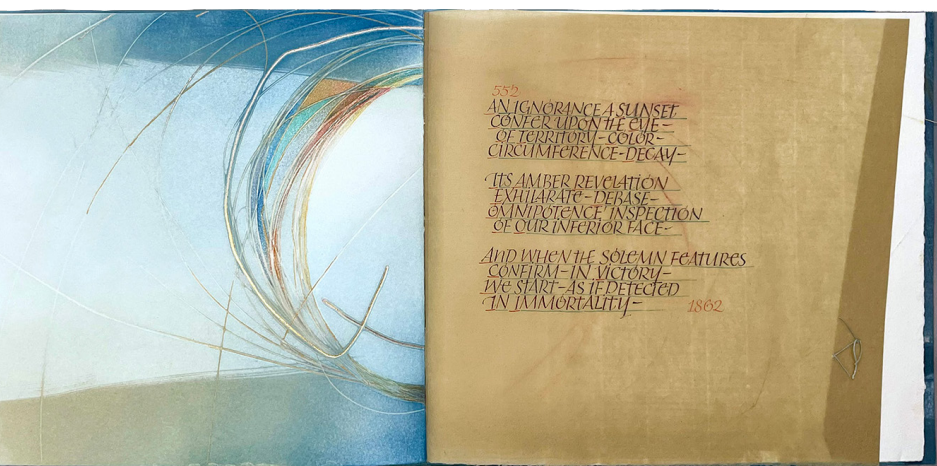 552
AN IGNORANCE A SUNSET
CONFER UPON THE EYE –
OF TERRITORY – COLOR –
CIRCUMFERENCE – DECAY –
ITS AMBER REVELATION
EXHILARATE – DEBASE –
OMNIPOTENCE INSPECTION
OF OUR INFERIOR FACE –
AND WHEN THE SOLEMN FEATURES
CONFIRM – IN VICTORY –
WE START – AS IF DETECTED
IN IMMORTALITY –
1862